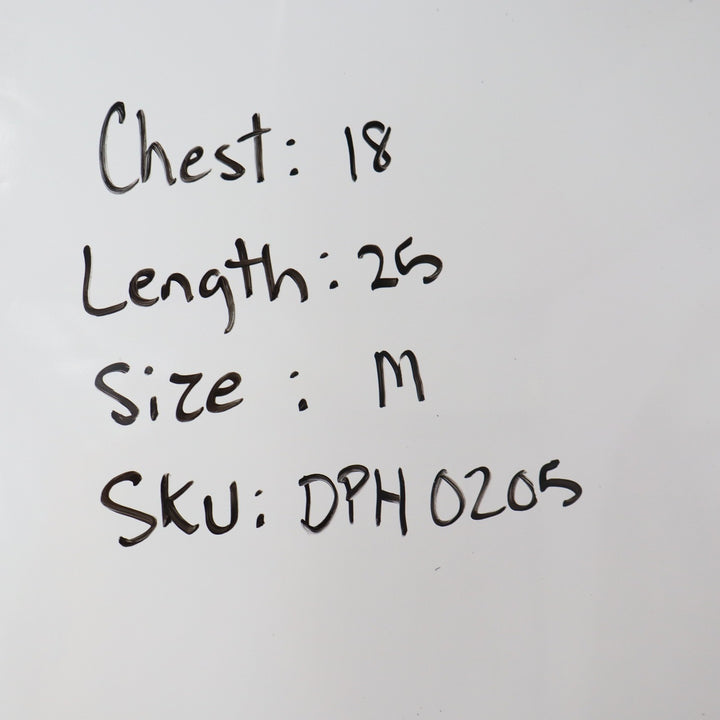 Chest: 18
Length: 25
Size : M
SKU: DPH 0205